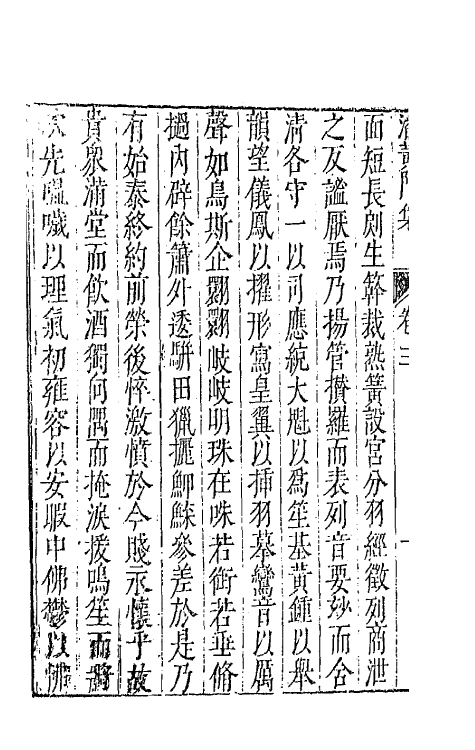 潘黃門集 卷三 一
面短長剡生簳裁熟簧設宮分羽經徵列商泄
之反謐厭焉乃揚管攅羅而表列音要妙而含
清各守一以司應統大魁以為笙基黃鍾以舉
韻望儀鳳以擢形寫皇翼以揷羽摹鸞音以厲
聲如鳥斯企翾翾岐岐明珠在咮若銜若垂脩
撾內辟餘簫外逶駢田獵攦䱜鰈參差於是乃
有始泰終約前榮後悴激憤於今賤永懷乎故
貴衆滿堂而飲酒獨向隅而掩淚援鳴笙而將
吹先嗢噦以理氣初雍容以安暇中佛鬱以怫